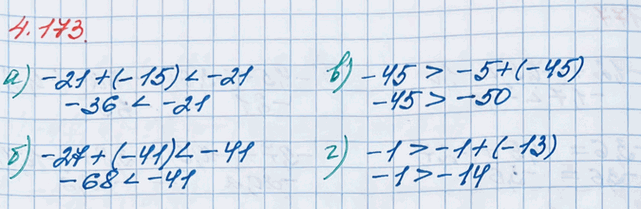 4.173.
а) -21 + (-15) < -21
-36 < -21
б) -27 + (-41) < -41
-68 < -41
в) -45 > -5 + (-45)
-45 > -50
г) -1 > -1 + (-13)
-1 > -14